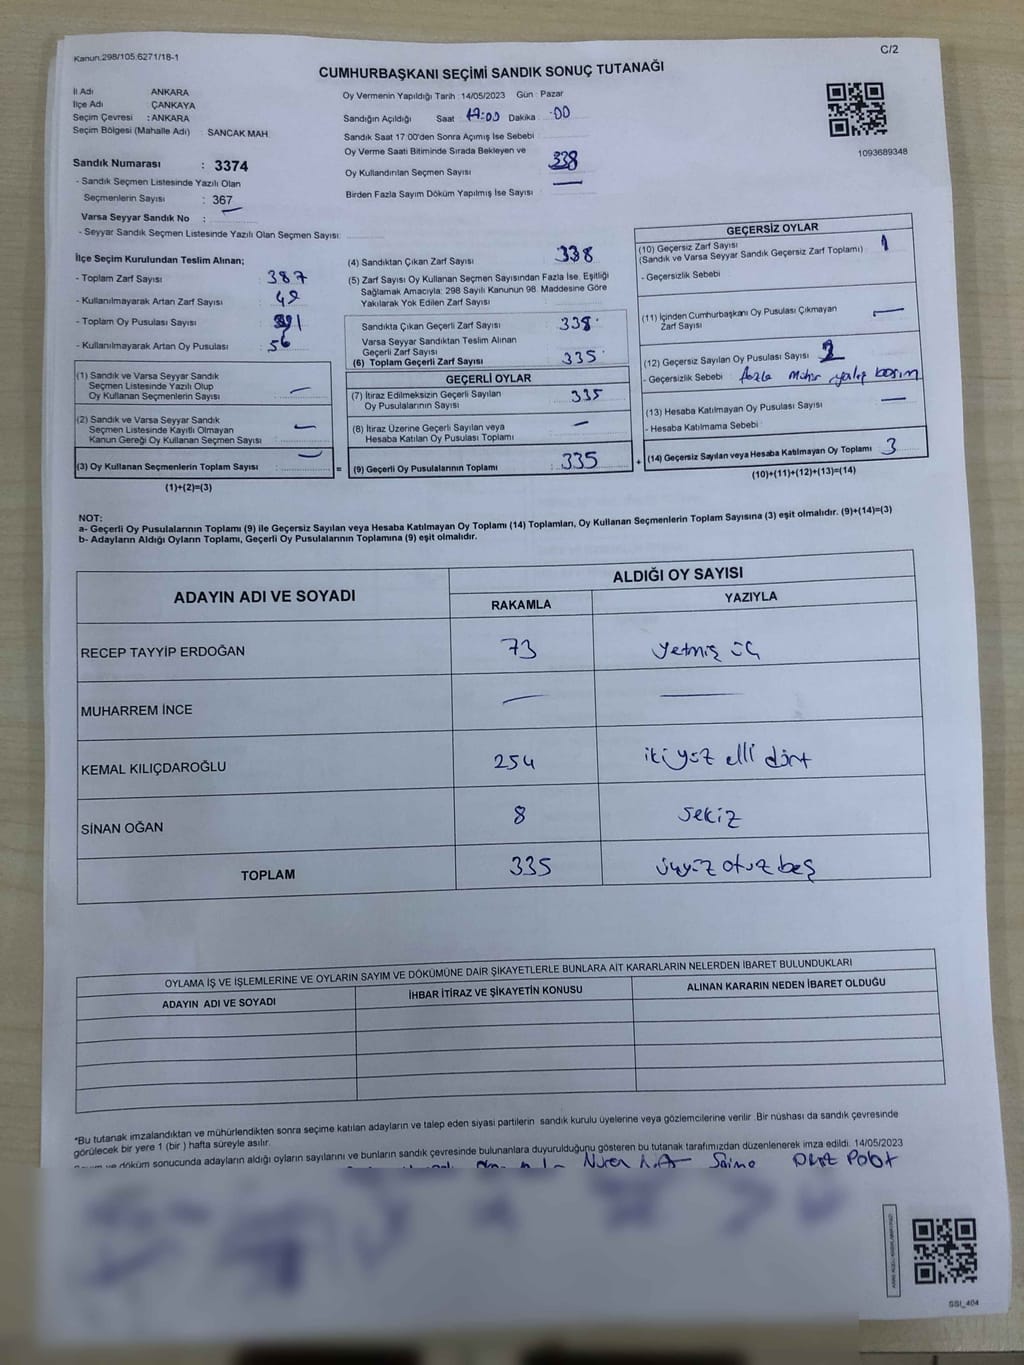 Kanun:298/105.6271/18-1
C/2
CUMHURBAŞKANI SEÇİMİ SANDIK SONUÇ TUTANAĞI
İl Adı ANKARA
İlçe Adı ÇANKAYA
Seçim Çevresi : ANKARA
Seçim Bölgesi (Mahalle Adı) SANCAK MAH
Sandık Numarası : 3374
- Sandık Seçmen Listesinde Yazılı Olan
Seçmenlerin Sayısı : 367
Varsa Seyyar Sandık No :
- Seyyar Sandık Seçmen Listesinde Yazılı Olan Seçmen Sayısı:
Oy Vermenin Yapıldığı Tarih :14/05/2023 Gün : Pazar
Sandığın Açıldığı Saat 17:00 Dakika :00
Sandık Saat 17.00'den Sonra Açımış İse Sebebi
Oy Verme Saati Bitiminde Sırada Bekleyen ve
Oy Kullandırılan Seçmen Sayısı 338
Birden Fazla Sayım Döküm Yapılmış İse Sayısı —
1093689348
İlçe Seçim Kurulundan Teslim Alınan;
- Toplam Zarf Sayısı : 387
- Kullanılmayarak Artan Zarf Sayısı : 49
- Toplam Oy Pusulası Sayısı : 391
- Kullanılmayarak Artan Oy Pusulası : 56
(1) Sandık ve Varsa Seyyar Sandık
Seçmen Listesinde Yazılı Olup
Oy Kullanan Seçmenlerin Sayısı : —
(2) Sandık ve Varsa Seyyar Sandık
Seçmen Listesinde Kayıtlı Olmayan
Kanun Gereği Oy Kullanan Seçmen Sayısı : —
(3) Oy Kullanan Seçmenlerin Toplam Sayısı : —
(1)+(2)=(3)
(4) Sandıktan Çıkan Zarf Sayısı : 338
(5) Zarf Sayısı Oy Kullanan Seçmen Sayısından Fazla İse, Eşitliği
Sağlamak Amacıyla; 298 Sayılı Kanunun 98. Maddesine Göre
Yakılarak Yok Edilen Zarf Sayısı :
Sandıkta Çıkan Geçerli Zarf Sayısı : 338
Varsa Seyyar Sandıktan Teslim Alınan
Geçerli Zarf Sayısı
(6) Toplam Geçerli Zarf Sayısı : 335
GEÇERLİ OYLAR
(7) İtiraz Edilmeksizin Geçerli Sayılan
Oy Pusulalarının Sayısı : 335
(8) İtiraz Üzerine Geçerli Sayılan veya
Hesaba Katılan Oy Pusulası Toplamı : —
= (9) Geçerli Oy Pusulalarının Toplamı : 335
GEÇERSİZ OYLAR
(10) Geçersiz Zarf Sayısı : 1
(Sandık ve Varsa Seyyar Sandık Geçersiz Zarf Toplamı)
- Geçersizlik Sebebi
(11) İçinden Cumhurbaşkanı Oy Pusulası Çıkmayan
Zarf Sayısı : —
(12) Geçersiz Sayılan Oy Pusulası Sayısı : 2
- Geçersizlik Sebebi : fazla mühür
(13) Hesaba Katılmayan Oy Pusulası Sayısı : —
- Hesaba Katılmama Sebebi
+ (14) Geçersiz Sayılan veya Hesaba Katılmayan Oy Toplamı 3
(10)+(11)+(12)+(13)=(14)
NOT:
a- Geçerli Oy Pusulalarının Toplamı (9) ile Geçersiz Sayılan veya Hesaba Katılmayan Oy Toplamı (14) Toplamları, Oy Kullanan Seçmenlerin Toplam Sayısına (3) eşit olmalıdır. (9)+(14)=(3)
b- Adayların Aldığı Oyların Toplamı, Geçerli Oy Pusulalarının Toplamına (9) eşit olmalıdır.
ADAYIN ADI VE SOYADI
ALDIĞI OY SAYISI
RAKAMLA YAZIYLA
RECEP TAYYİP ERDOĞAN 73 yetmiş üç
MUHARREM İNCE — —
KEMAL KILIÇDAROĞLU 254 iki yüz elli dört
SİNAN OĞAN 8 sekiz
TOPLAM 335 üçyüz otuz beş
OYLAMA İŞ VE İŞLEMLERİNE VE OYLARIN SAYIM VE DÖKÜMÜNE DAİR ŞİKAYETLERLE BUNLARA AİT KARARLARIN NELERDEN İBARET BULUNDUKLARI
ADAYIN ADI VE SOYADI İHBAR İTİRAZ VE ŞİKAYETİN KONUSU ALINAN KARARIN NEDEN İBARET OLDUĞU
*Bu tutanak imzalandıktan ve mühürlendikten sonra seçime katılan adayların ve talep eden siyasi partilerin sandık kurulu üyelerine veya gözlemcilerine verilir .Bir nüshası da sandık çevresinde
görülecek bir yere 1 (bir ) hafta süreyle asılır.
ve döküm sonucunda adayların aldığı oyların sayılarını ve bunların sandık çevresinde bulunanlara duyurulduğunu gösteren bu tutanak tarafımızdan düzenlenerek imza edildi. 14/05/2023
Saime Polat
SSI_404